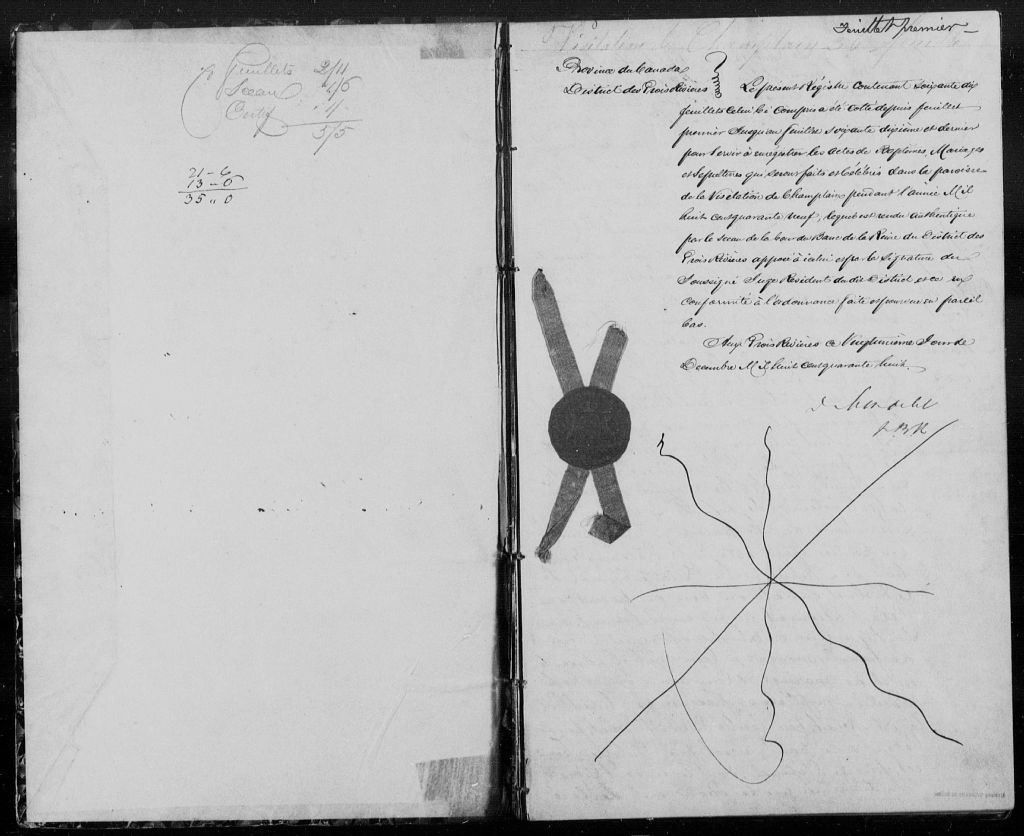 Feuillets 2/11
Sceau
Certif
5/5
21-6
13-0
35 " 0
Feuillet premier
Visitation de Champlain
Province du Canada
District des Trois Rivières
Le présent Régistre contenant soixante dix
feuillets celui ci compris a été coté depuis feuillet
premier Jusqu'au feuillet soixante dixième et dernier
pour servir à enregistrer les actes de Baptêmes, Mariages
et Sepultures qui seront faits et célébrés dans la paroisse
de la Visitation de Champlain pendant l'année Mil
huit cent quarante neuf, lequel est rendu authentique
par le sceau de la Cour du Banc de la Reine du District des
Trois Rivières apposé à icelui et par la signature du
Soussigné Juge Résident du dit District et ce en
conformité à l'ordonnance faite et pourvue en pareil
Cas.
Aux Trois Rivières ce Vingtunième Jour de
Décembre Mil huit cent quarante huit.